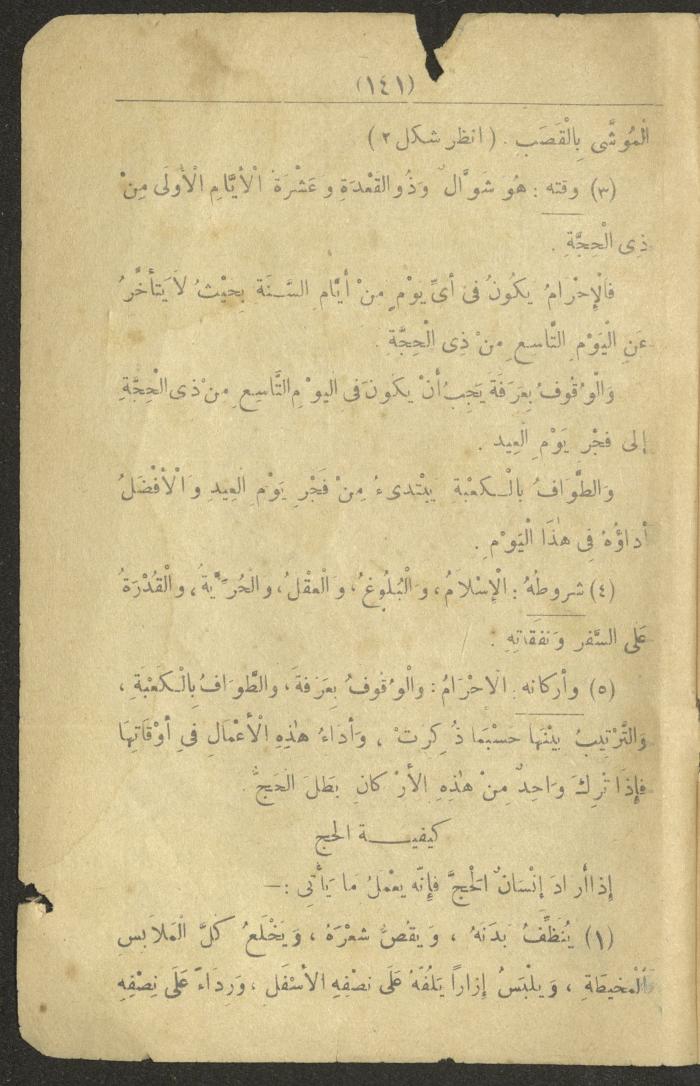 (١٤١)
الْمُوشَّى بِالْقَصَبِ . ( انظر شكل ٢ )
(٣) وقته : هُو شَوَّالٌ وَذُو القَعْدَةِ وَعَشْرَةُ الْأَيَّامِ الْأُولَى مِنْ
ذِى الْحِجَّةِ .
فَالْإِحْرَامُ يَكُونُ فى أَىِّ يَوْمٍ مِنْ أَيَّامِ السَّنَةِ بِحَيْثُ لاَ يَتَأَخَّرُ
عَنِ الْيَوْمِ التَّاسِعِ مِنْ ذِى الْحِجَّةِ .
وَالْوُقُوفُ بِعَرَفَةَ يَجِبُ أَنْ يَكُونَ فى اليوْمِ التَّاسِعِ مِنْ ذى الْحِجَّةِ
إلى فَجْرِ يَوْمِ الْعِيد .
وَالطَّوَافُ بِالْكَعْبَةِ يَبْتَدىءُ مِنْ فَجْرِ يَوْمِ الْعِيدِ وَالْأَفْضَلُ
أَدَاؤُهُ فِى هٰذَا الْيَوْمِ .
(٤) شروطُهُ : الْإِسْلَامُ ، وَالْبُلُوغُ ، وَالْعَقْلُ ، وَالْحُرِّيَّةُ ، وَالْقُدْرَةُ
عَلَى السَّفَرِ وَنَفَقَاتِهِ .
(٥) وأركانه : الاحْرَامُ : وَالْوُقُوفُ بِعَرَفَةَ ، وَالطَّوَافُ بِالْكَعْبَةِ ،
وَالتَّرْتِيبُ بَيْنَهَا حَسْبَمَا ذُكِرَتْ ، وَأَدَاءُ هٰذِهِ الْأَعْمَالِ فِى أَوْقَاتِهَا
فَإِذَا تُرِكَ وَاحِدٌ مِنْ هٰذِهِ الأَرْكَانِ بَطَلَ الْحَجُّ .
كيفيـــة الحج
إِذَا أَرَادَ إِنْسَانٌ الْحَجَّ فَإِنَّه يَعْمَلُ مَا يَأْتِى :—
(١) يُنَظِّفُ بَدَنَهُ ، وَيَقُصُّ شَعْرَهُ ، وَيَخْلَعُ كُلَّ الْمَلَابِسِ
الْمَخِيطَةِ ، وَيَلْبَسُ إِزَاراً يَلُفُّهُ عَلَى نِصْفِهِ الْأَسْفَلِ ، وَرِدَاءً عَلَى نِصْفِهِ